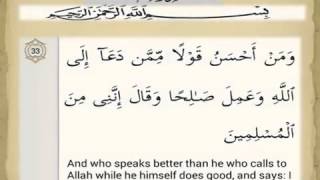 بِسْمِ اللَّهِ الرَّحْمَٰنِ الرَّحِيمِ
33
وَمَنْ أَحْسَنُ قَوْلًا مِّمَّن دَعَآ إِلَى
اللَّهِ وَعَمِلَ صَٰلِحًا وَقَالَ إِنَّنِى مِنَ
الْمُسْلِمِينَ
And who speaks better than he who calls to
Allah while he himself does good, and says: I